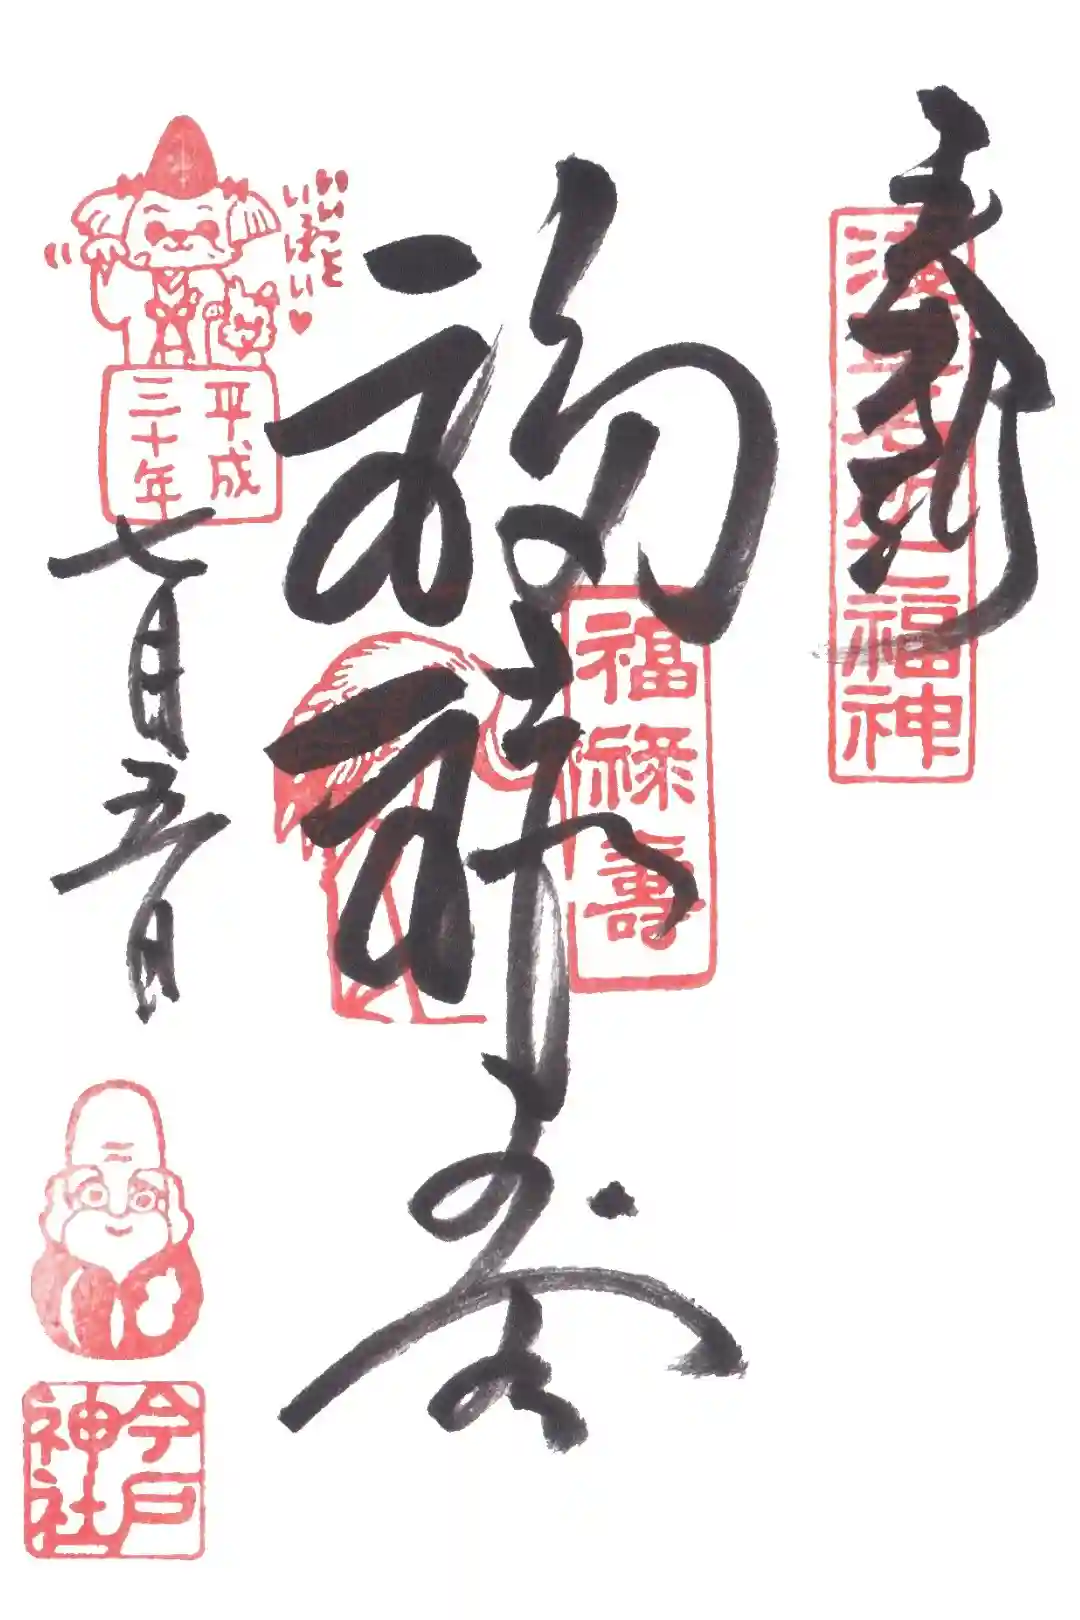 奉拝
浅草名所七福神
福禄寿
福禄寿
いいこと
いっぱい♥
平成
三十年
七月五日
今戸
神社